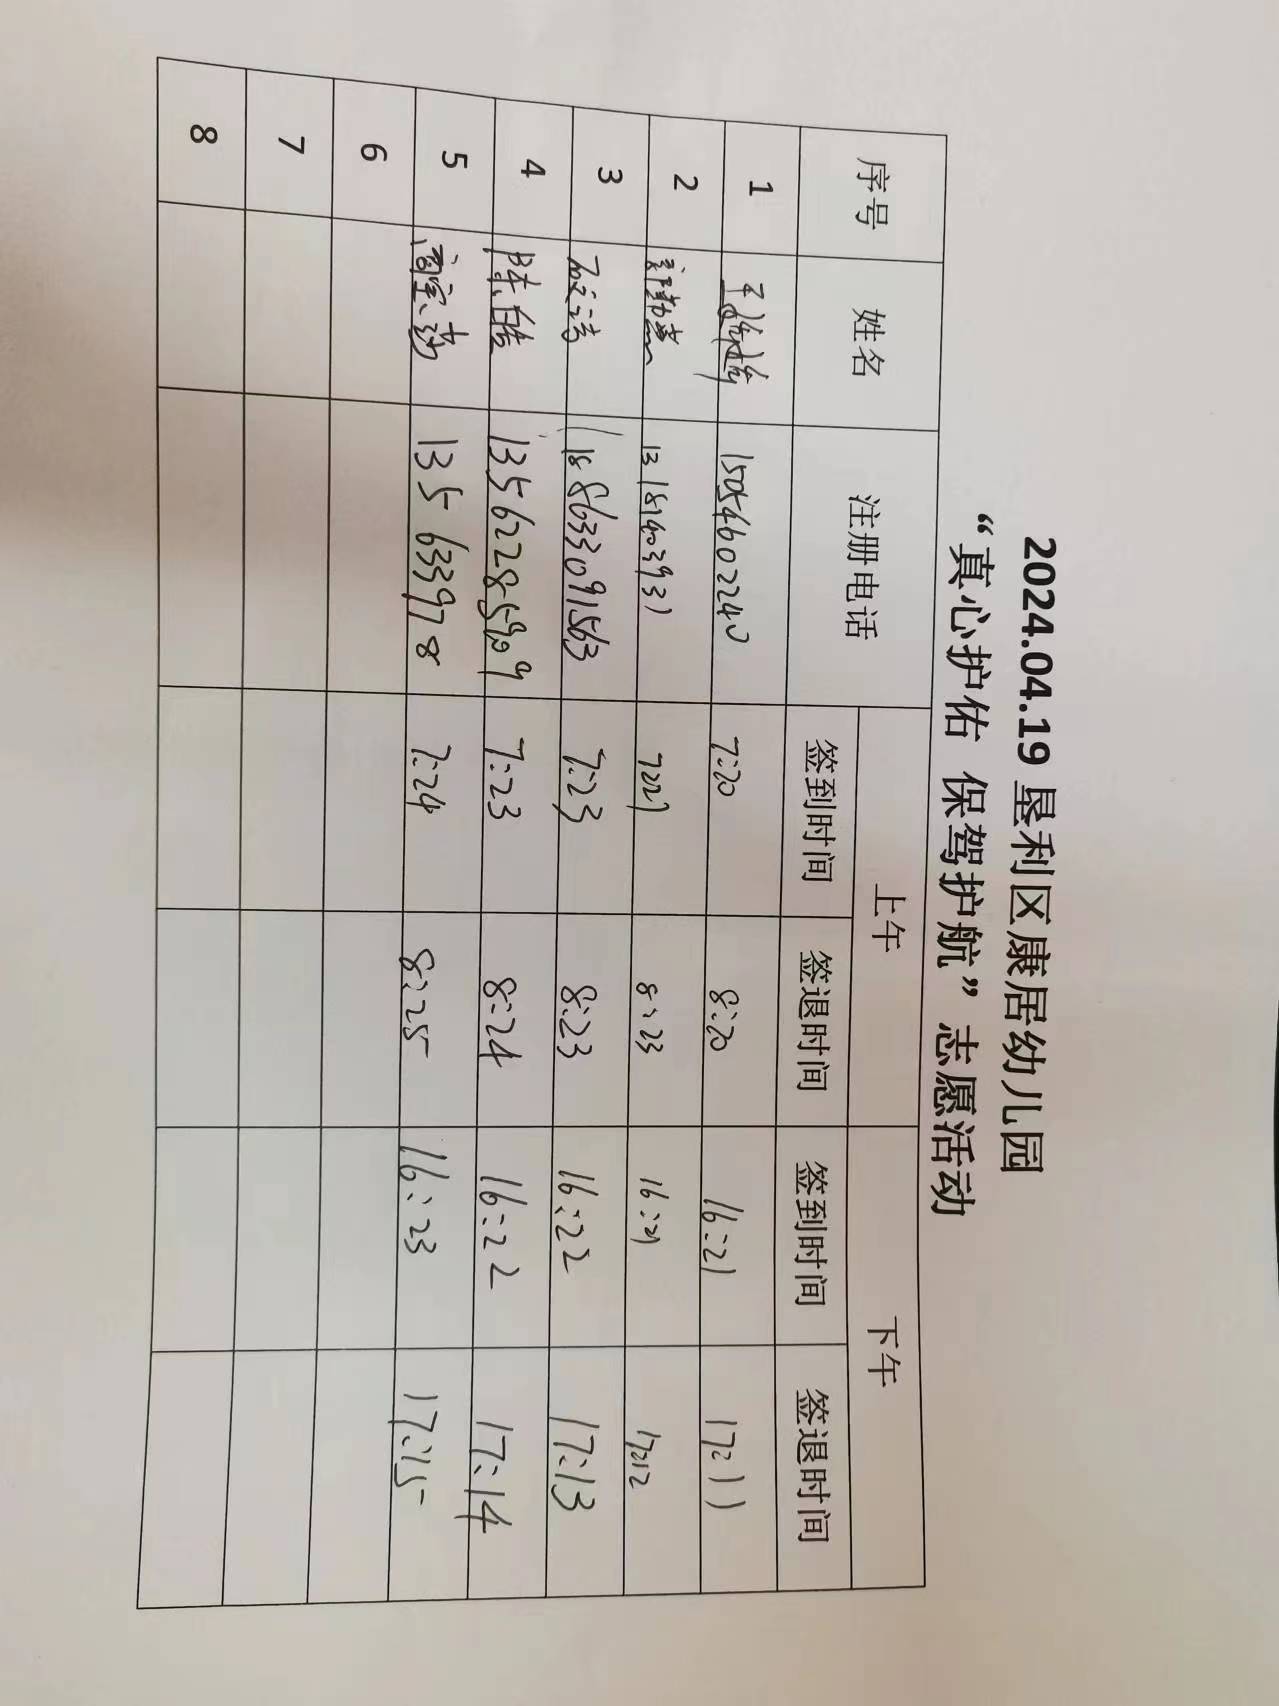 2024.04.19 垦利区康居幼儿园
“真心护佑 保驾护航”志愿活动
序号 姓名 注册电话 上午 下午
签到时间 签退时间 签到时间 签退时间
1 15054602240 7:20 8:20 16:21 17:11
2 13181403931 8:23 16:21 17:12
3 188633091563 7:23 8:23 16:22 17:13
4 陈皓 13562285909 7:23 8:24 16:22 17:14
5 13563397 8 7:24 8:25 16:23 17:15
6
7
8